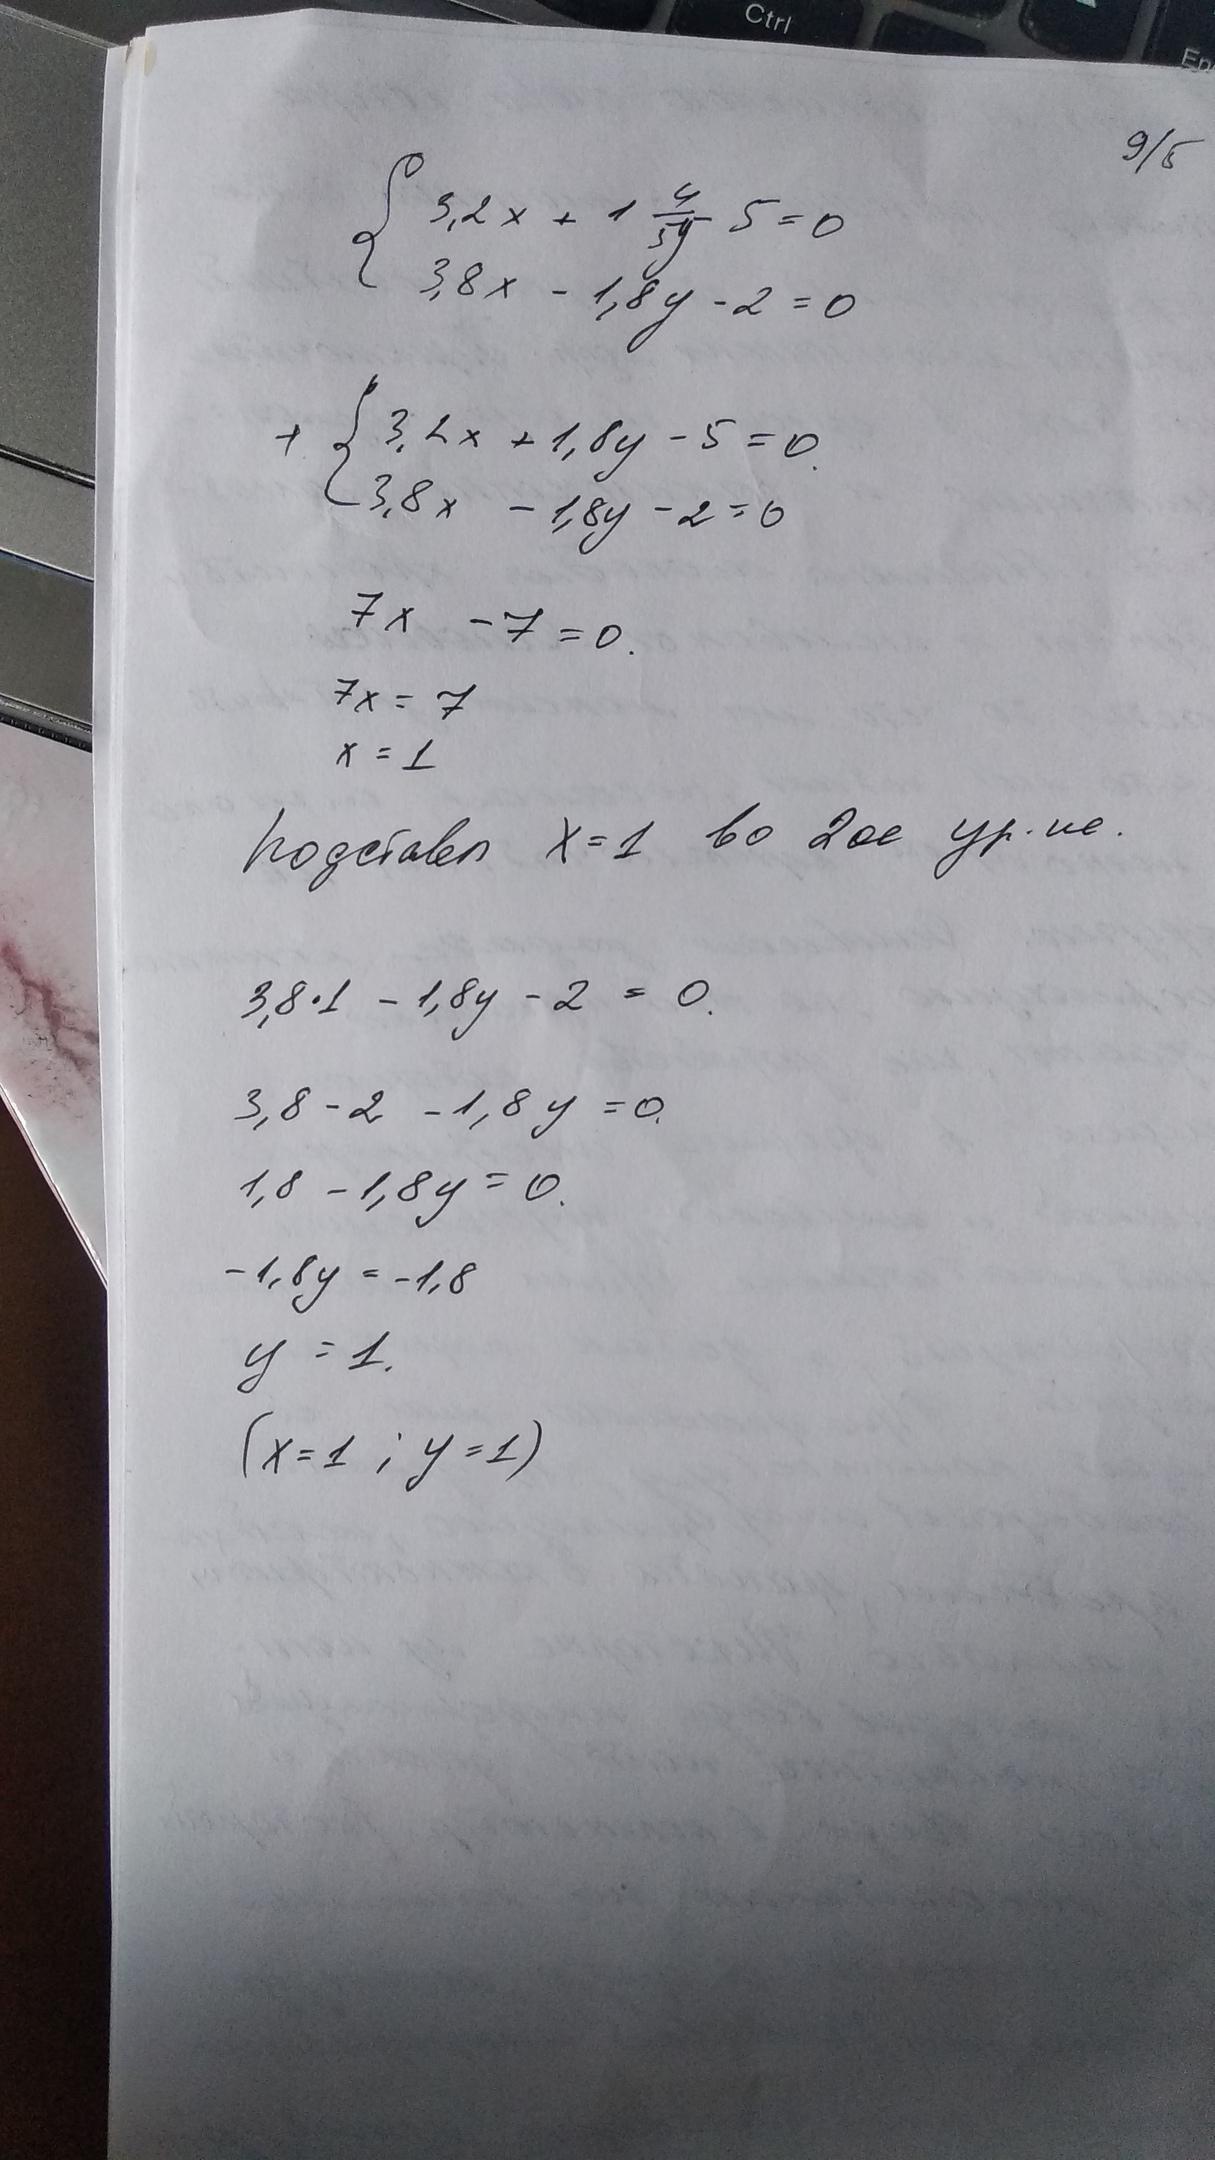 Ctrl
9/5
3,2x + 1 4/5y - 5 = 0
3,8x - 1,8y - 2 = 0
+ 3,2x + 1,8y - 5 = 0.
3,8x - 1,8y - 2 = 0
7x - 7 = 0.
7x = 7
x = 1
Подставл x = 1 во 2ое ур-ие.
3,8·1 - 1,8y - 2 = 0.
3,8 - 2 - 1,8y = 0.
1,8 - 1,8y = 0.
-1,8y = -1,8
y = 1.
(x = 1 ; y = 1)